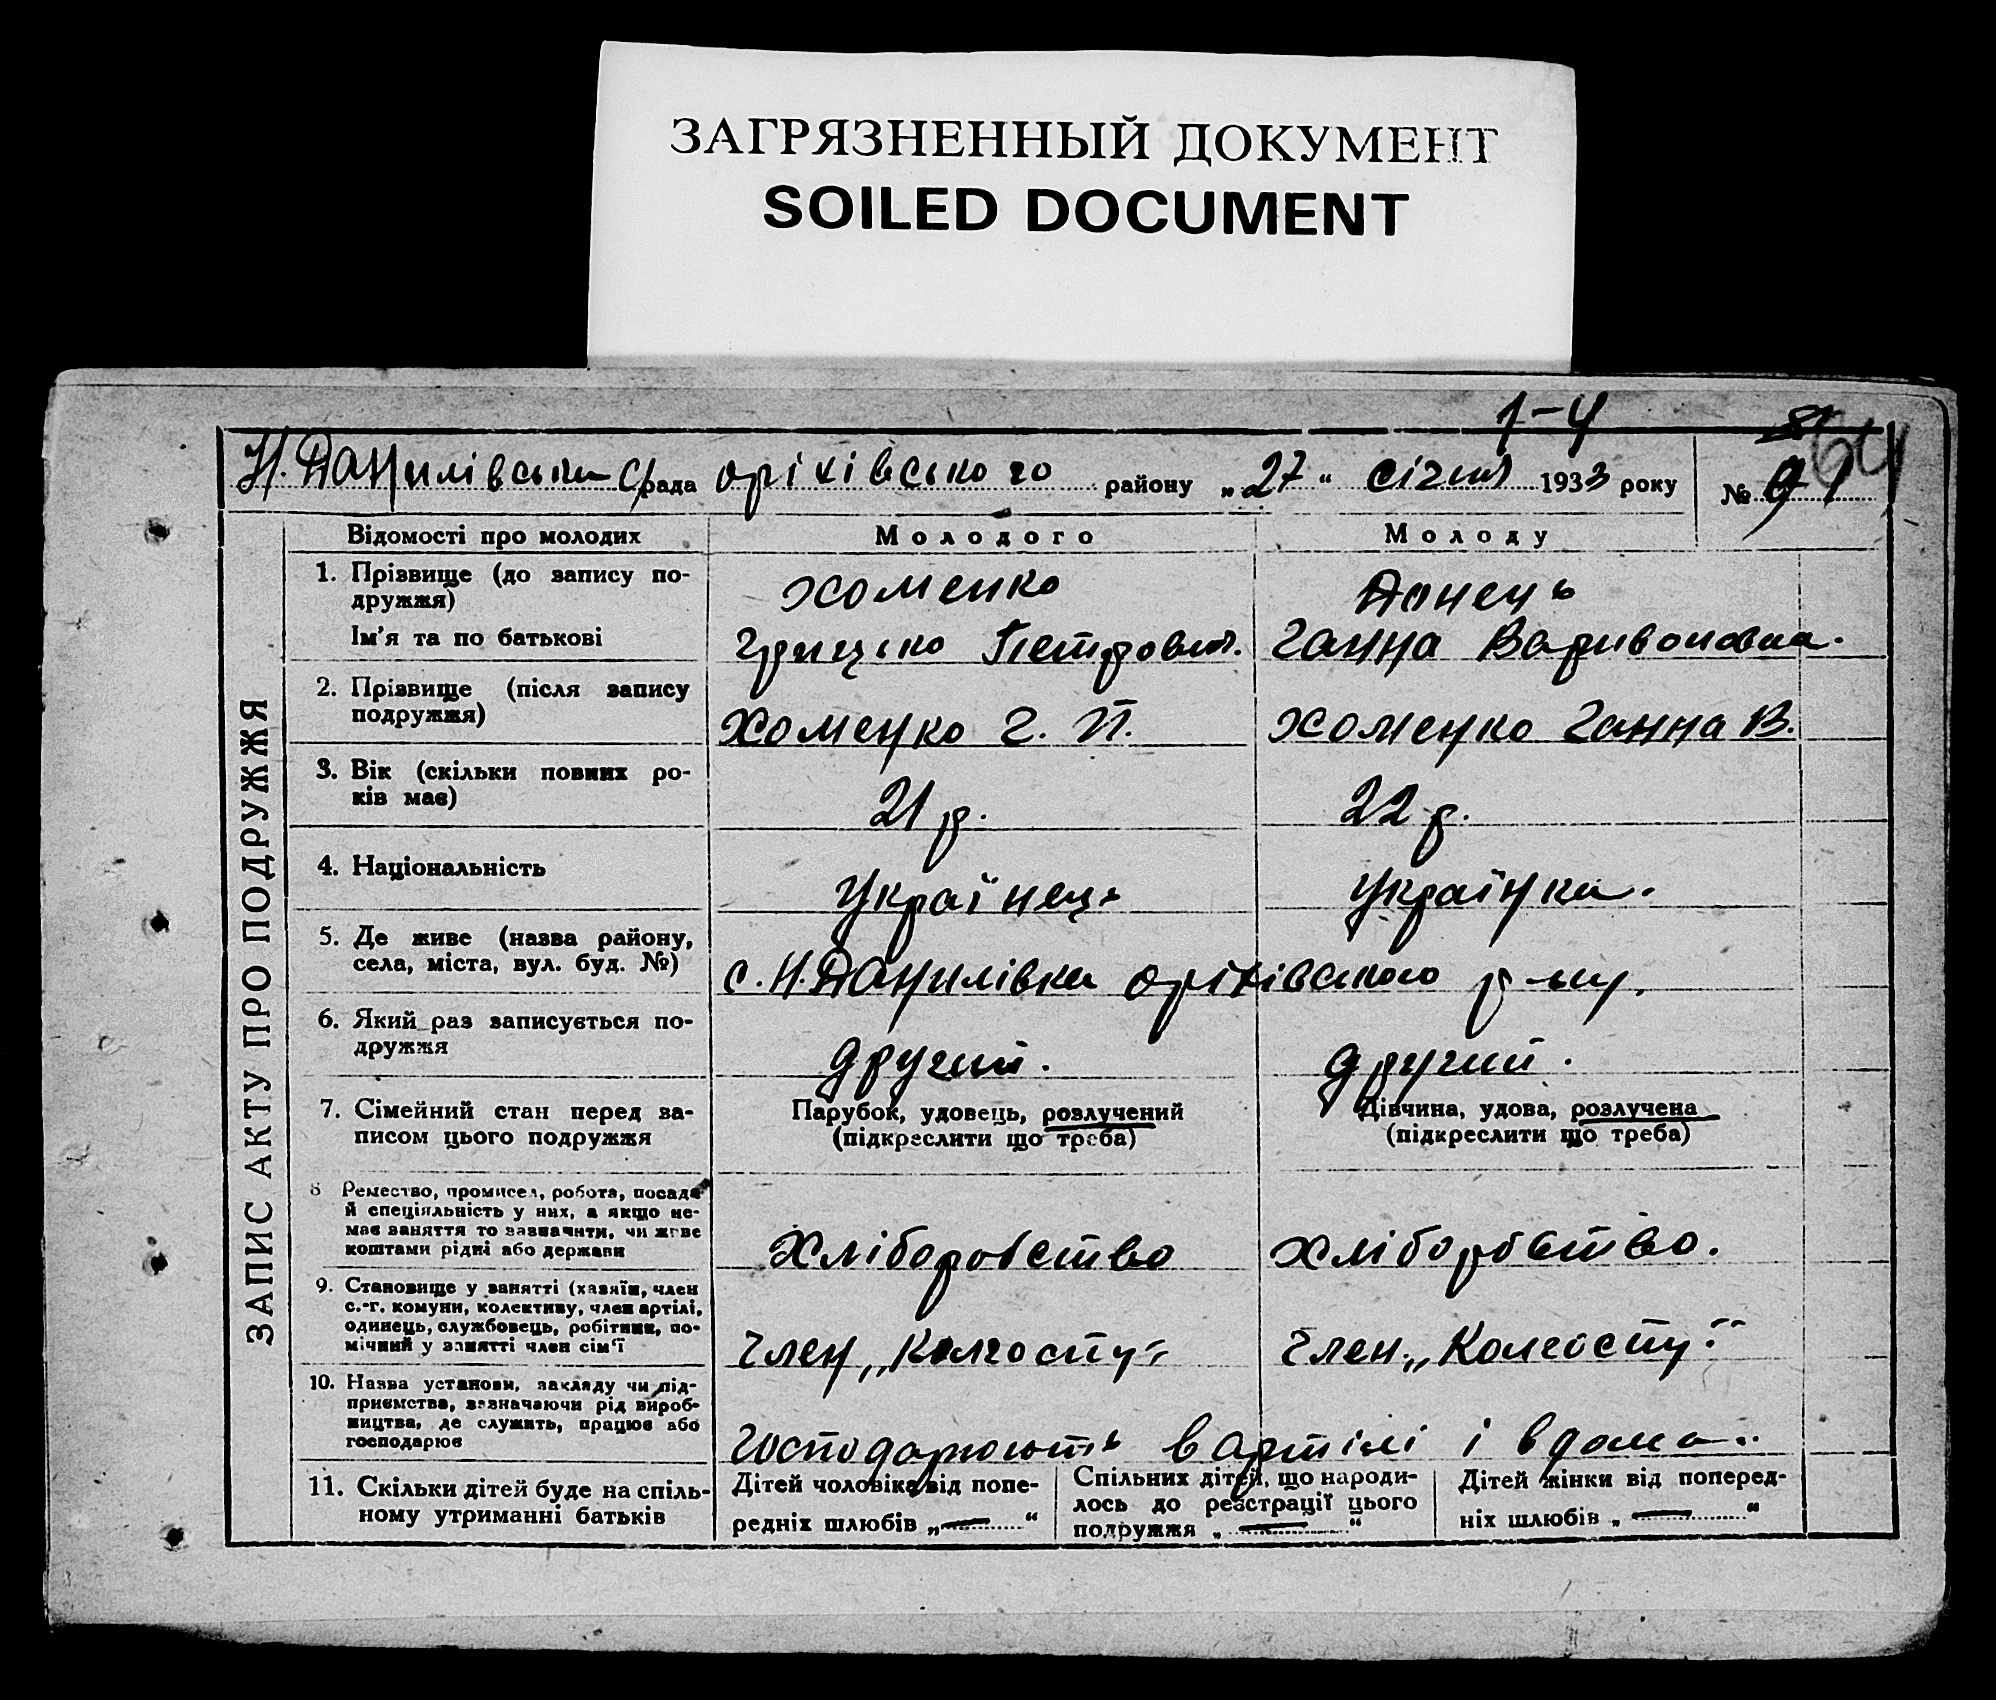 ЗАГРЯЗНЕННЫЙ ДОКУМЕНТ
SOILED DOCUMENT
1-4
Н. Данилівська С/рада оріхівського району „27“ січня 1933 року № 91
ЗАПИС АКТУ ПРО ПОДРУЖЖЯ
Відомості про молодих
Молодого
Молоду
1. Прізвище (до запису по-
дружжя)
Ім'я та по батькові
Хоменко
Грицько Петрович.
Донець
Ганна Варивоновна.
2. Прізвище (після запису
подружжя)
Хоменко Г. П.
Хоменко Ганна В.
3. Вік (скільки повних ро-
ків має)
21 р.
22 р.
4. Національність
Українець
Українка.
5. Де живе (назва району,
села, міста, вул. буд. №)
с. Н. Данилівка оріхівського р-ну.
6. Який раз записується по-
дружжя
другий.
другий.
7. Сімейний стан перед за-
писом цього подружжя
Парубок, удовець, розлучений
(підкреслити що треба)
Дівчина, удова, розлучена
(підкреслити що треба)
8 Ремество, промисел, робота, посада
й спеціяльність у них, а якщо не-
має заняття то зазначити, чи живе
коштами рідні або держави
Хліборобство
Хліборобство.
9. Становище у занятті (хазяїн, член
с.-г. комуни, колективу, член артілі,
одинець, службовець, робітник, по-
мічний у занятті член сім'ї
член „Колгоспу“
член „Колгоспу“.
10. Назва установи, закладу чи під-
приємства, зазначаючи рід вироб-
ництва, де служить, працює або
господарює
Господарюють в артілі і вдома.
11. Скільки дітей буде на спіль-
ному утриманні батьків
Дітей чоловіка від попе-
редніх шлюбів „—“
Спільних дітей, що народи-
лось до реєстрації цього
подружжя „—“
Дітей жінки від поперед-
ніх шлюбів „—“